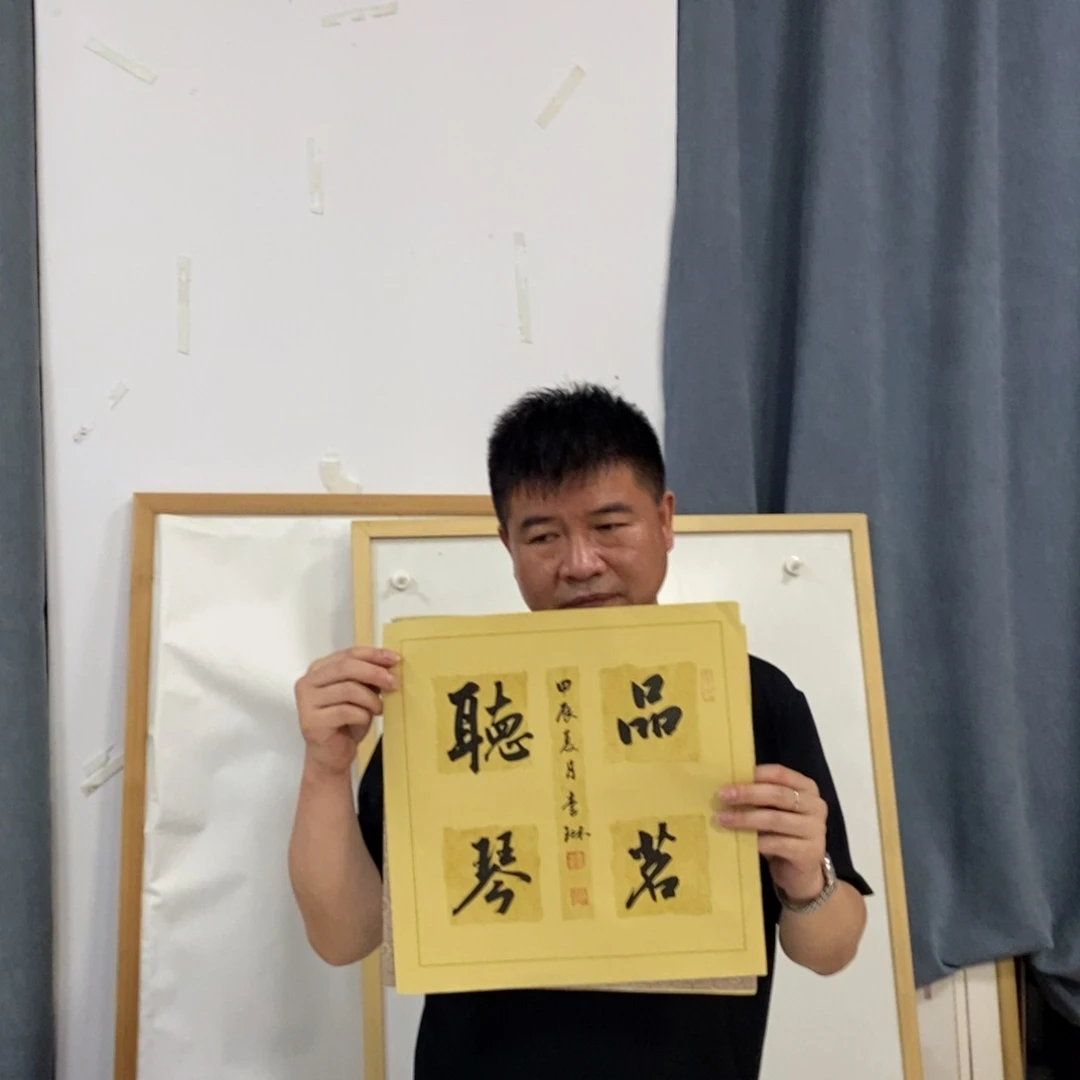 品茗
聽琴
甲辰夏月琳